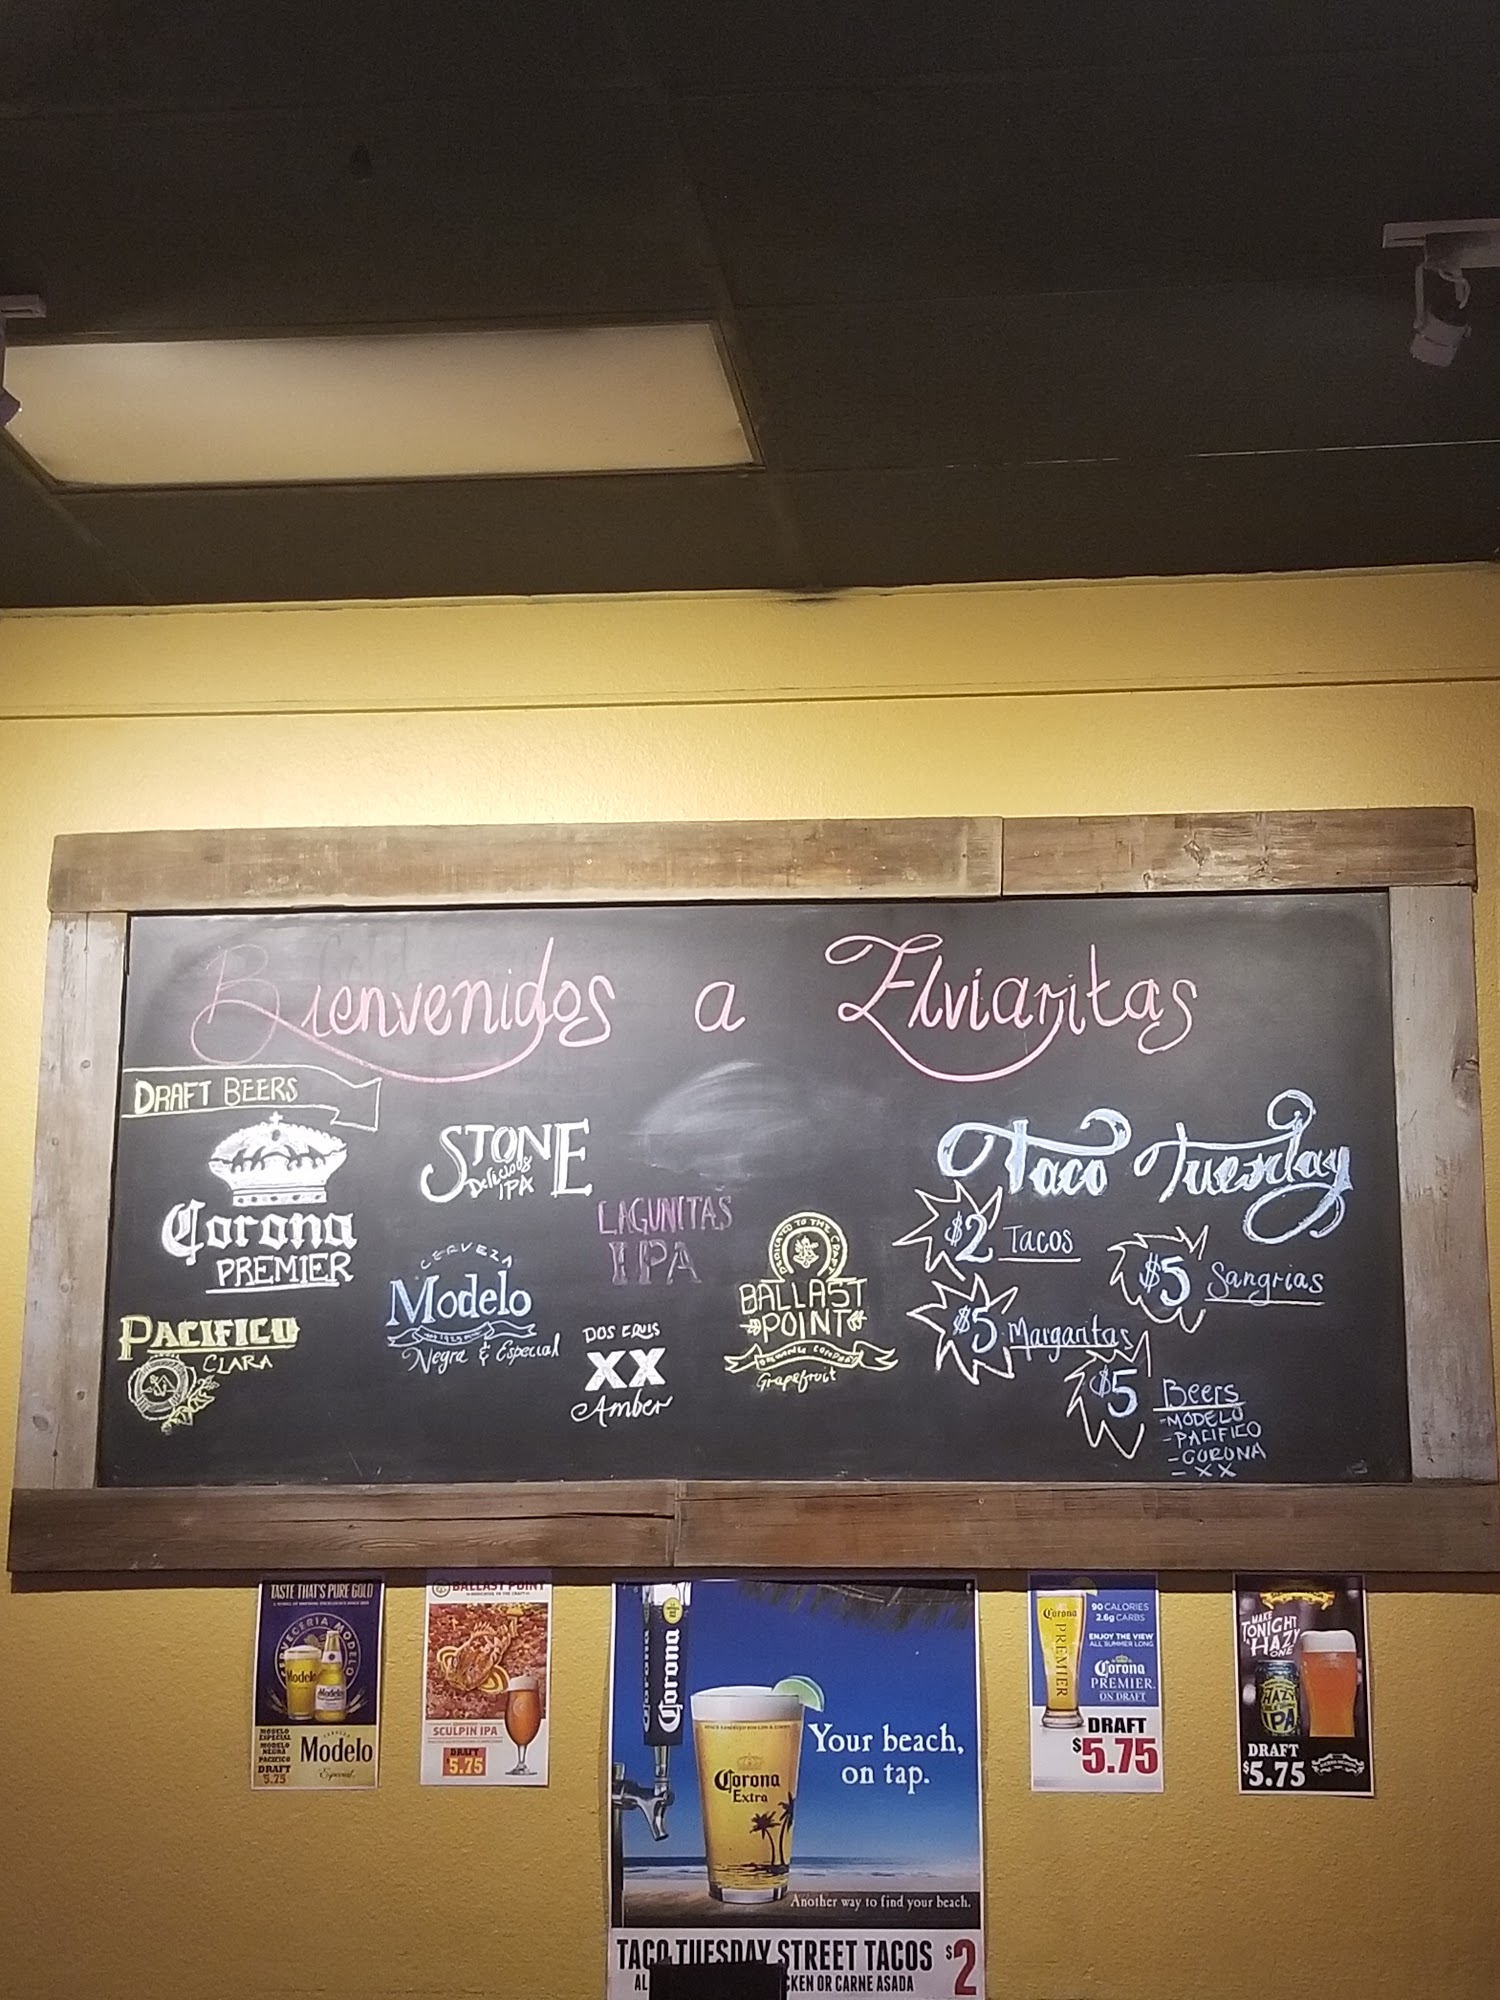 Bienvenidos a Elviaritas
DRAFT BEERS
Corona
PREMIER
PACIFICO
CLARA
STONE
Delicious
IPA
CERVEZA
Modelo
Negra & Especial
LAGUNITAS
IPA
DOS EQUIS
XX
Amber
DEDICATED TO THE CRAFT
BALLAST
POINT
Grapefruit
Taco Tuesday
$2 TACOS
$5 Sangrias
$5 Margaritas
$5 Beers
-MODELO
-PACIFICO
-CORONA
-XX
TASTE THAT'S PURE GOLD
CERVECERIA MODELO
Modelo
Modelo
MODELO
ESPECIAL
MODELO
NEGRA
PACIFICO
DRAFT
5.75
Modelo
Especial
BALLAST POINT
SCULPIN IPA
DRAFT
5.75
Corona
Corona
Corona
Extra
Your beach,
on tap.
Another way to find your beach.
TACO TUESDAY STREET TACOS $2
OR CARNE ASADA
Corona
PREMIER
90 CALORIES
2.6g CARBS
ENJOY THE VIEW
ALL SUMMER LONG
Corona
PREMIER
ON DRAFT
DRAFT
$5.75
MAKE
TONIGHT
A HAZY
ONE
HAZY
IPA
DRAFT
$5.75